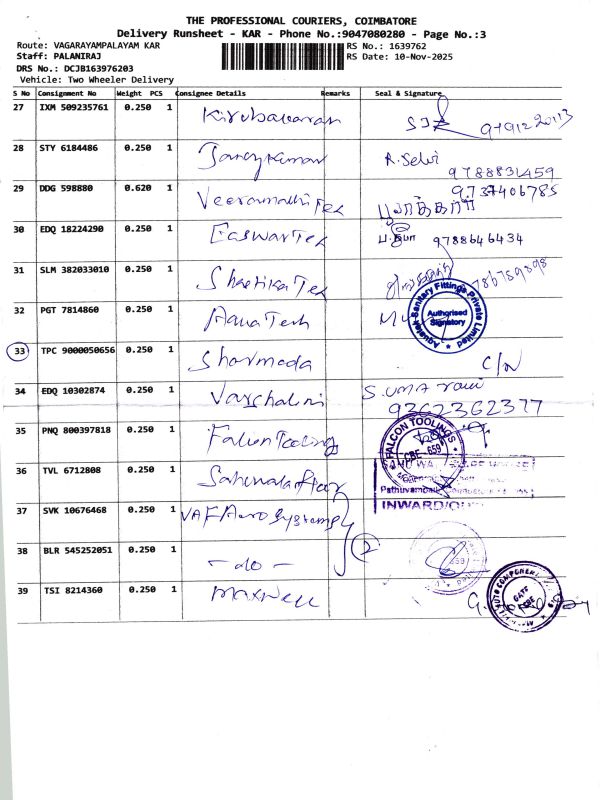 THE PROFESSIONAL COURIERS, COIMBATORE
Delivery Runsheet - KAR - Phone No.:9047080280 - Page No.:3
Route: VAGARAYAMPALAYAM KAR RS No.: 1639762
Staff: PALANIRAJ RS Date: 10-Nov-2025
DRS No.: DCJB163976203
Vehicle: Two Wheeler Delivery
S No Consignment No Weight PCS Consignee Details Remarks Seal & Signature
27 IXM 509235761 0.250 1 Kirubakaran
28 STY 6184486 0.250 1 R. Selvi
9788831459
29 DDG 598880 0.620 1 Veeramathi Tex 9737406785
30 EDQ 18224290 0.250 1 Easwar Tex 9788646434
31 SLM 382033010 0.250 1
32 PGT 7814860 0.250 1 Aqua Tech Aquatek Sanitary Fittings Private Limited Authorised Signatory
33 TPC 9000050656 0.250 1 Sharmada C/N
34 EDQ 10302874 0.250 1 Varshalini S. UMA
9362362377
35 PNQ 800397818 0.250 1 Falcon Tooling FALCON TOOLINGS CBE - 659
36 TVL 6712808 0.250 1
INWARD
37 SVK 10676468 0.250 1 VAF Aero Systems
38 BLR 545252051 0.250 1 - do - 2
39 TSI 8214360 0.250 1 Maxwell AUTO COMPONENT GATE